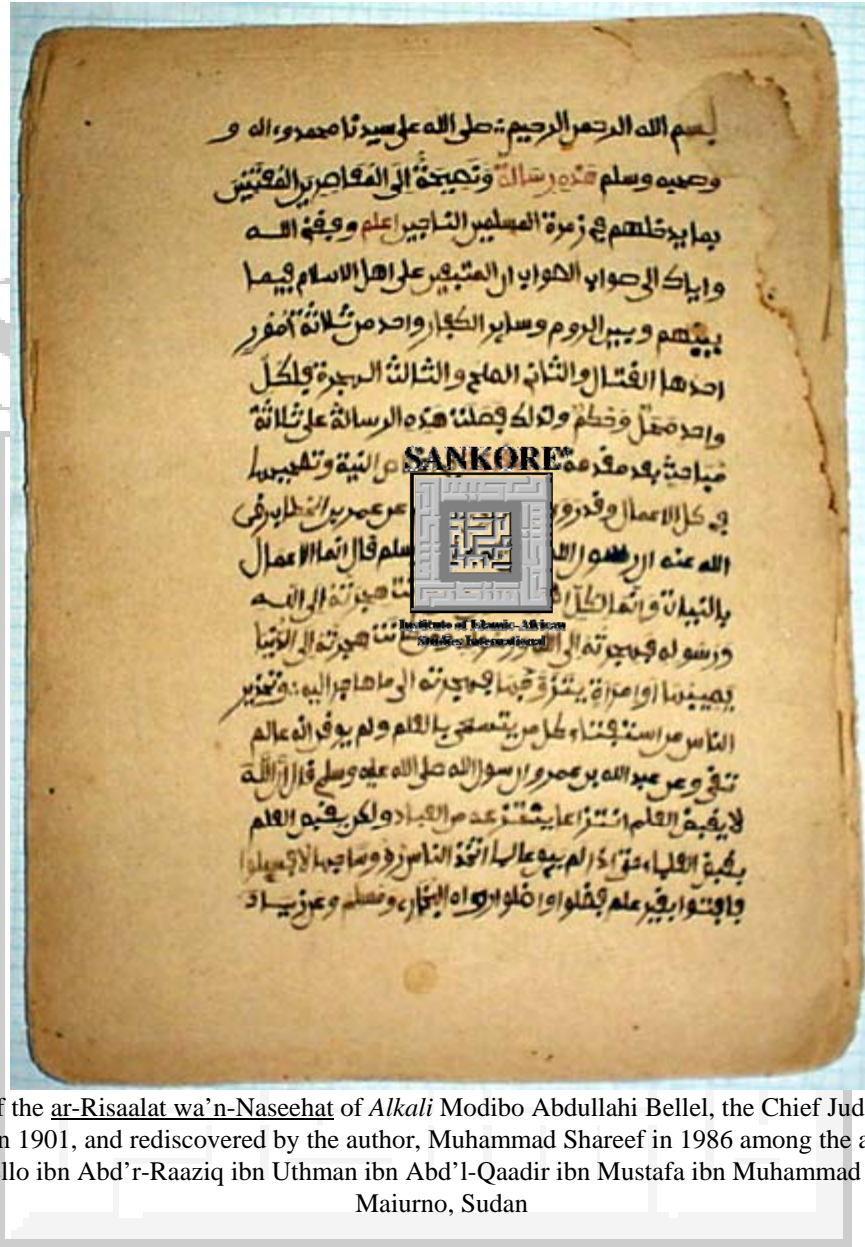 بسم الله الرحمن الرحيم صلى الله على سيدنا محمد وءاله و
وصحبه وسلم هذه رسالة ونصيحة إلى المعاصرين المفتين
بما يدخلهم في زمرة المسلمين الناجين اعلم وفقني الله
واياك الى صواب الصواب ان المتعين على اهل الاسلام فيما
بينهم وبين الروم وساير الكفار واحد من ثلاثة أمور
احدها القتال والثاني الصلح والثالث الهجرة فلكل
واحد محل وحكم ولذلك فصلت هذه الرسالة على ثلاثة
مباحث بعد مقدمة النية وتصحيحها
في كل الاعمال وقد عن عمر بن الخطاب رضي
الله عنه ان رسول الله سلم قال انما الاعمال
بالنيات وانما لكل هجرته إلى الله
ورسوله فهجرته إلى الله هجرته إلى الدنيا
يصيبها أو امرأة يتزوجها فهجرته الى ما هاجر اليه وتحذير
الناس من استفتاء كل من يتسمى بالعلم ولم يعرف انه عالم
تقي وعن عبد الله بن عمرو ان رسول الله صلى الله عليه وسلم قال ان الله
لا يقبض العلم انتزاعا ينتزعه من العباد ولكن يقبض العلم
بقبض العلماء حتى اذا لم يبق عالما اتخذ الناس رؤوسا جهالا فسيلوا
فافتوا بغير علم فضلوا واضلوا رواه البخاري ومسلم وعن زياد
SANKORE'
Institute of Islamic-African
Studies International
f the ar-Risaalat wa'n-Naseehat of Alkali Modibo Abdullahi Bellel, the Chief Jud
n 1901, and rediscovered by the author, Muhammad Shareef in 1986 among the a
llo ibn Abd'r-Raaziq ibn Uthman ibn Abd'l-Qaadir ibn Mustafa ibn Muhammad
Maiurno, Sudan